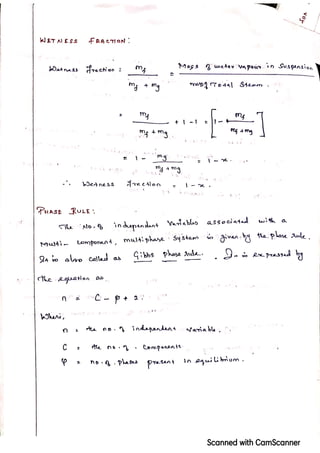 WETNESS FRACTION:
Wetness fraction : mf / mf + mg = Mass of water vapour in Suspension / mass of Total Steam.
= mf / mf + mg + 1 - 1 = [ 1 - mf / mf + mg ]
= 1 - mg / mf + mg = 1 - x.
∴ Wetness fraction = 1 - x.
PHASE RULE:
The No. of independent Variables associated with a
Multi- component, multiphase System is given by the phase rule.
It is also called as Gibbs phase rule. It is expressed by
the equation as
n = C - p + 2
Where,
n = the no. of independent variable.
C = the no. of Components
φ = no. of phases present in equilibrium.
Scanned with CamScanner